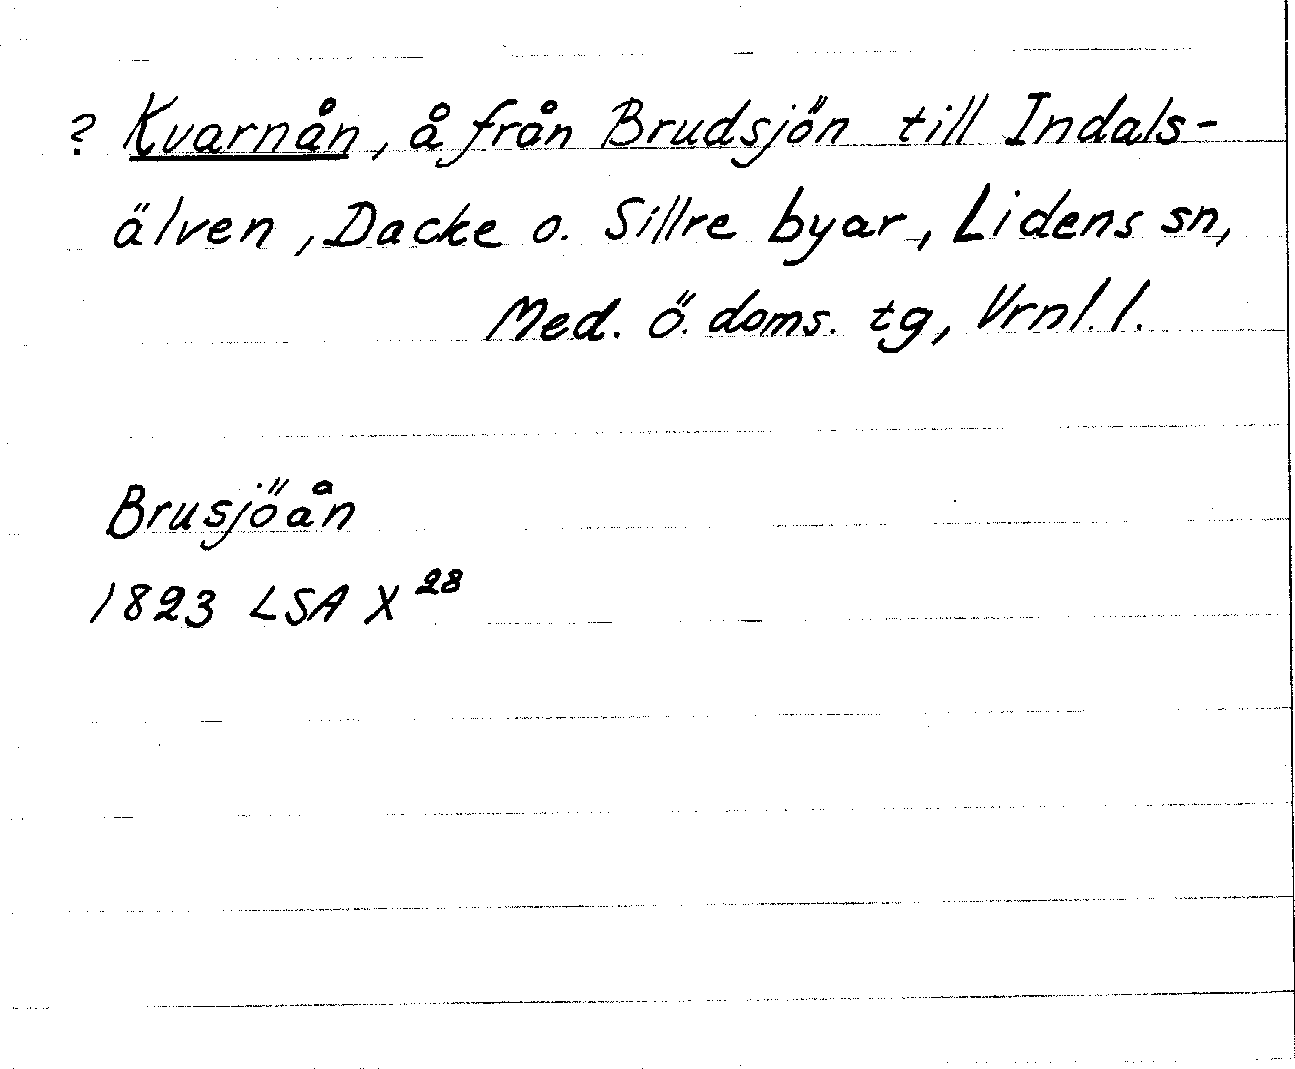 ? Kvarnån, å från Brudsjön till Indals-
älven, Dacke o. Sillre byar, Lidens sn,
Med. ö. doms. tg, Vrnl. l.
Brusjöån
1823 LSA X 28